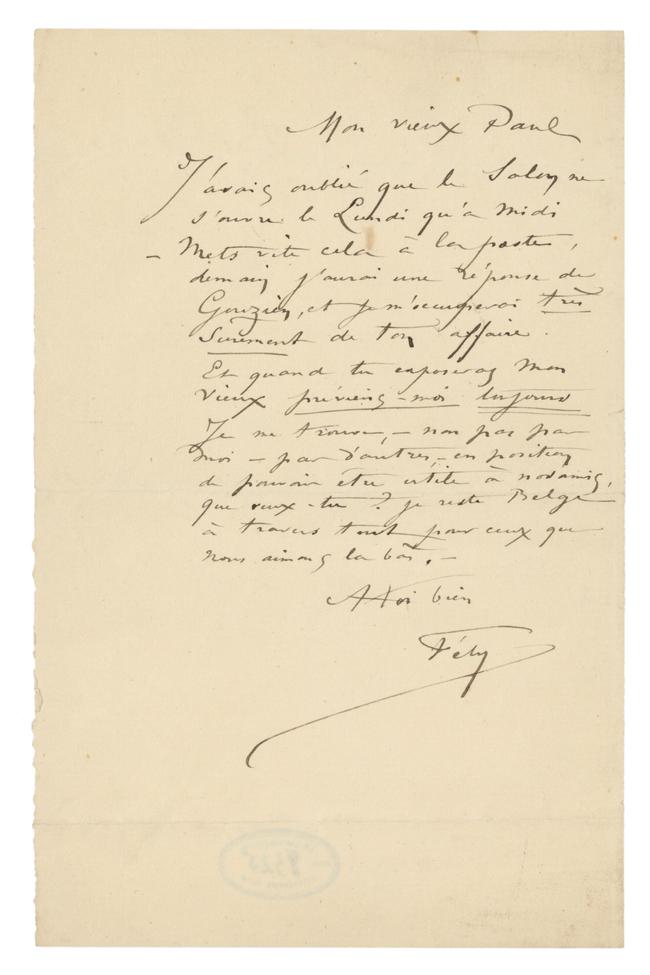 Mon vieux Paul
J'avais oublié que le Salon ne
s'ouvre le Lundi qu'a midi
– Mets vite cela à la poste,
demain j'aurai une réponse de
Gouzien, et je m'occuperai très
Surement de ton affaire.
Et quand tu exposeras mon
vieux préviens-moi toujours
Je me trouve, – non pas par
moi – par d'autres, – en position
de pouvoir être utile à nos amis,
que veux-tu ? je reste Belge
à travers tout pour ceux que
nous aimons la bas. –
A toi bien
Fély
9525